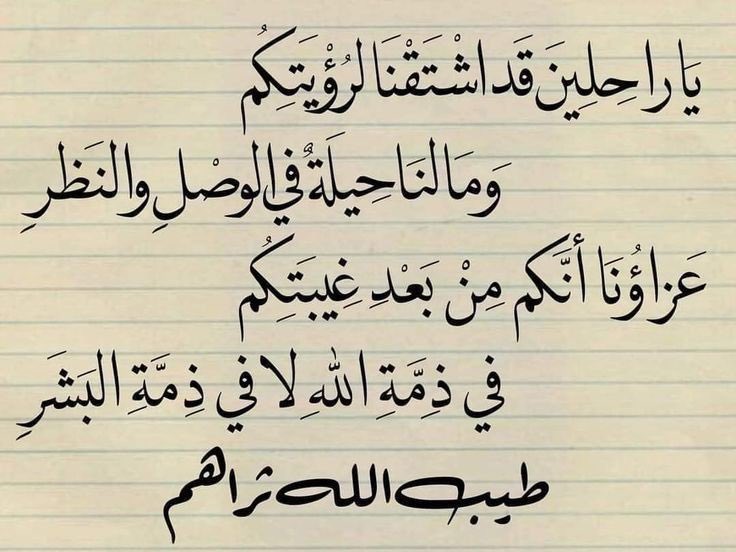 يَا راحِلِينَ قَد اشْتَقْنَا لرُؤْيَتِكُم
وَمَا لنَا حِيلَةٌ في الوصْلِ والنَظرِ
عَزاؤُنَا أنَّكم مِنْ بَعْدِ غِيبَتِكُم
في ذِمَّةِ اللهِ لا في ذِمَّةِ البَشَرِ
طيب الله ثراهم